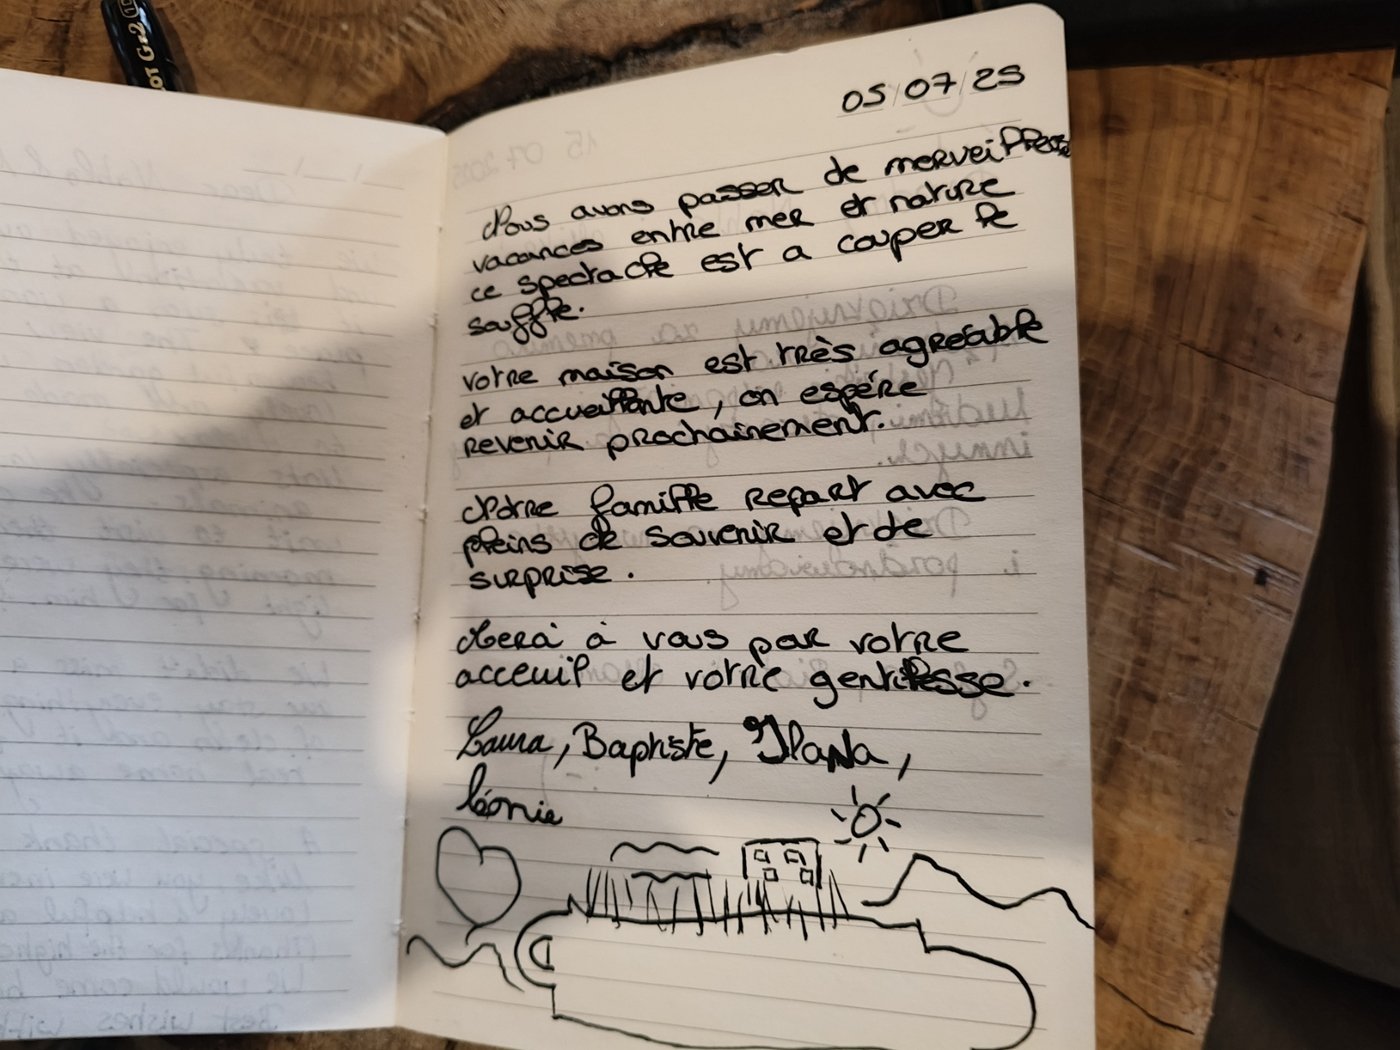 OT G-2
05/07/25
Nous avons passer de merveilleuse
vacances entre mer et nature
ce spectacle est a couper le
souffle.
votre maison est très agréable
et accueillante, on espére
revenir prochainement.
Notre famille repart avec
pleins de souvenir et de
surprise.
Merci à vous par votre
acceuil et votre gentillesse.
Laura, Baptiste, Ilana,
léonie